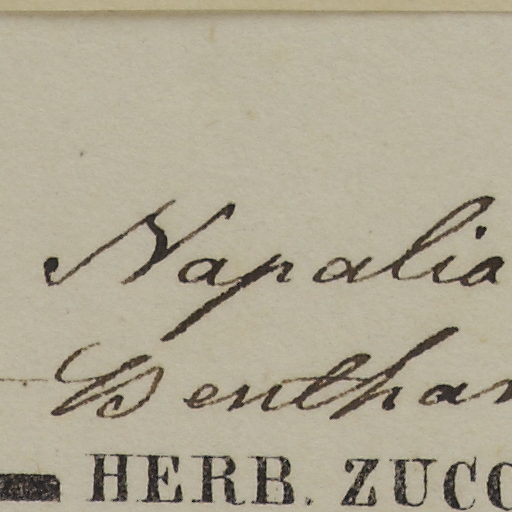 Napalia
Bentham
HERB. ZUCC